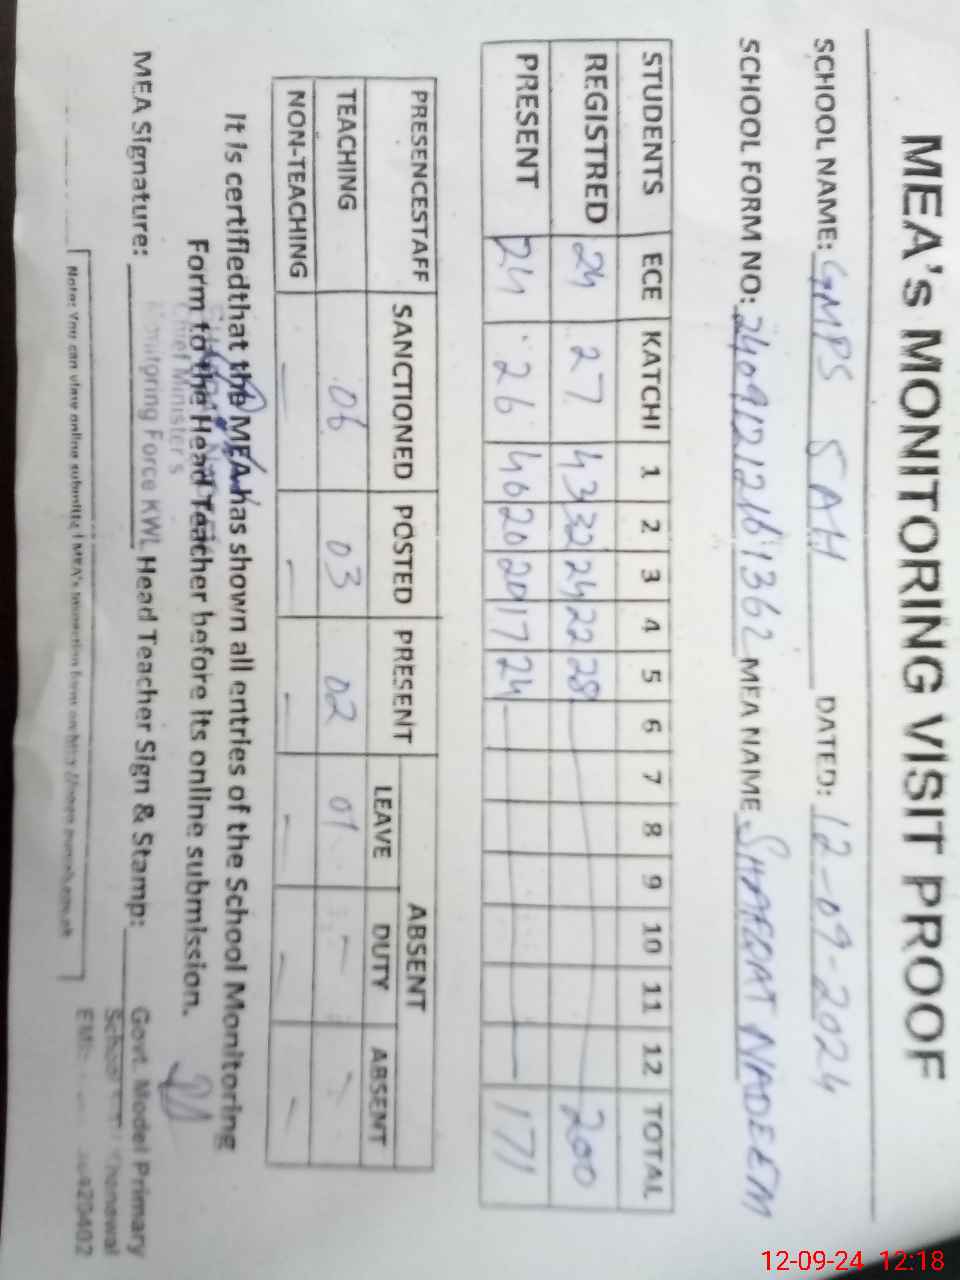 MEA's MONITORING VISIT PROOF
SCHOOL NAME: GMPS 5 AH DATED: 12-09-2024
SCHOOL FORM NO: MEA NAME SHAFQAT NADEEM
STUDENTS ECE KATCHI 1 2 3 4 5 6 7 8 9 10 11 12 TOTAL
REGISTRED 24 27 43 32 24 22 28 200
PRESENT 24 26 40 20 20 17 24 171
PRESENCESTAFF SANCTIONED POSTED PRESENT ABSENT
LEAVE DUTY ABSENT
TEACHING 06 03 02 01 - -
NON-TEACHING - - - - - -
It is certifiedthat the MEA has shown all entries of the School Monitoring
Form to the Head Teacher before its online submission.
Chief Minister's
Monitoring Force KWL
MEA Signature: Head Teacher Sign & Stamp:
Govt. Model Primary
School Khanewal
Note: You can view online submitted MEA's
12-09-24 12:18